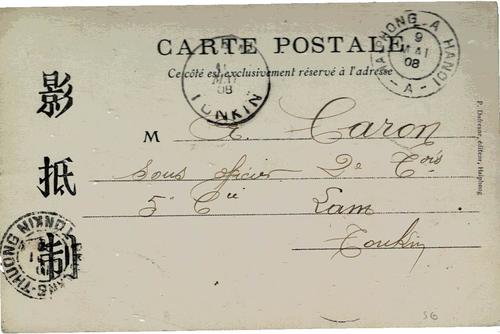 CARTE POSTALE
Ce côté est exclusivement réservé à l'adresse
HAIPHONG A HANOI
9
MAI
08
A
MAI
08
TONKIN
影
抵
制
M A. Caron
sous officier 2e Cois
5e Cie Lam
Tonkin
P. Dufresne, éditeur, Haiphong
THUONG TONKIN
56